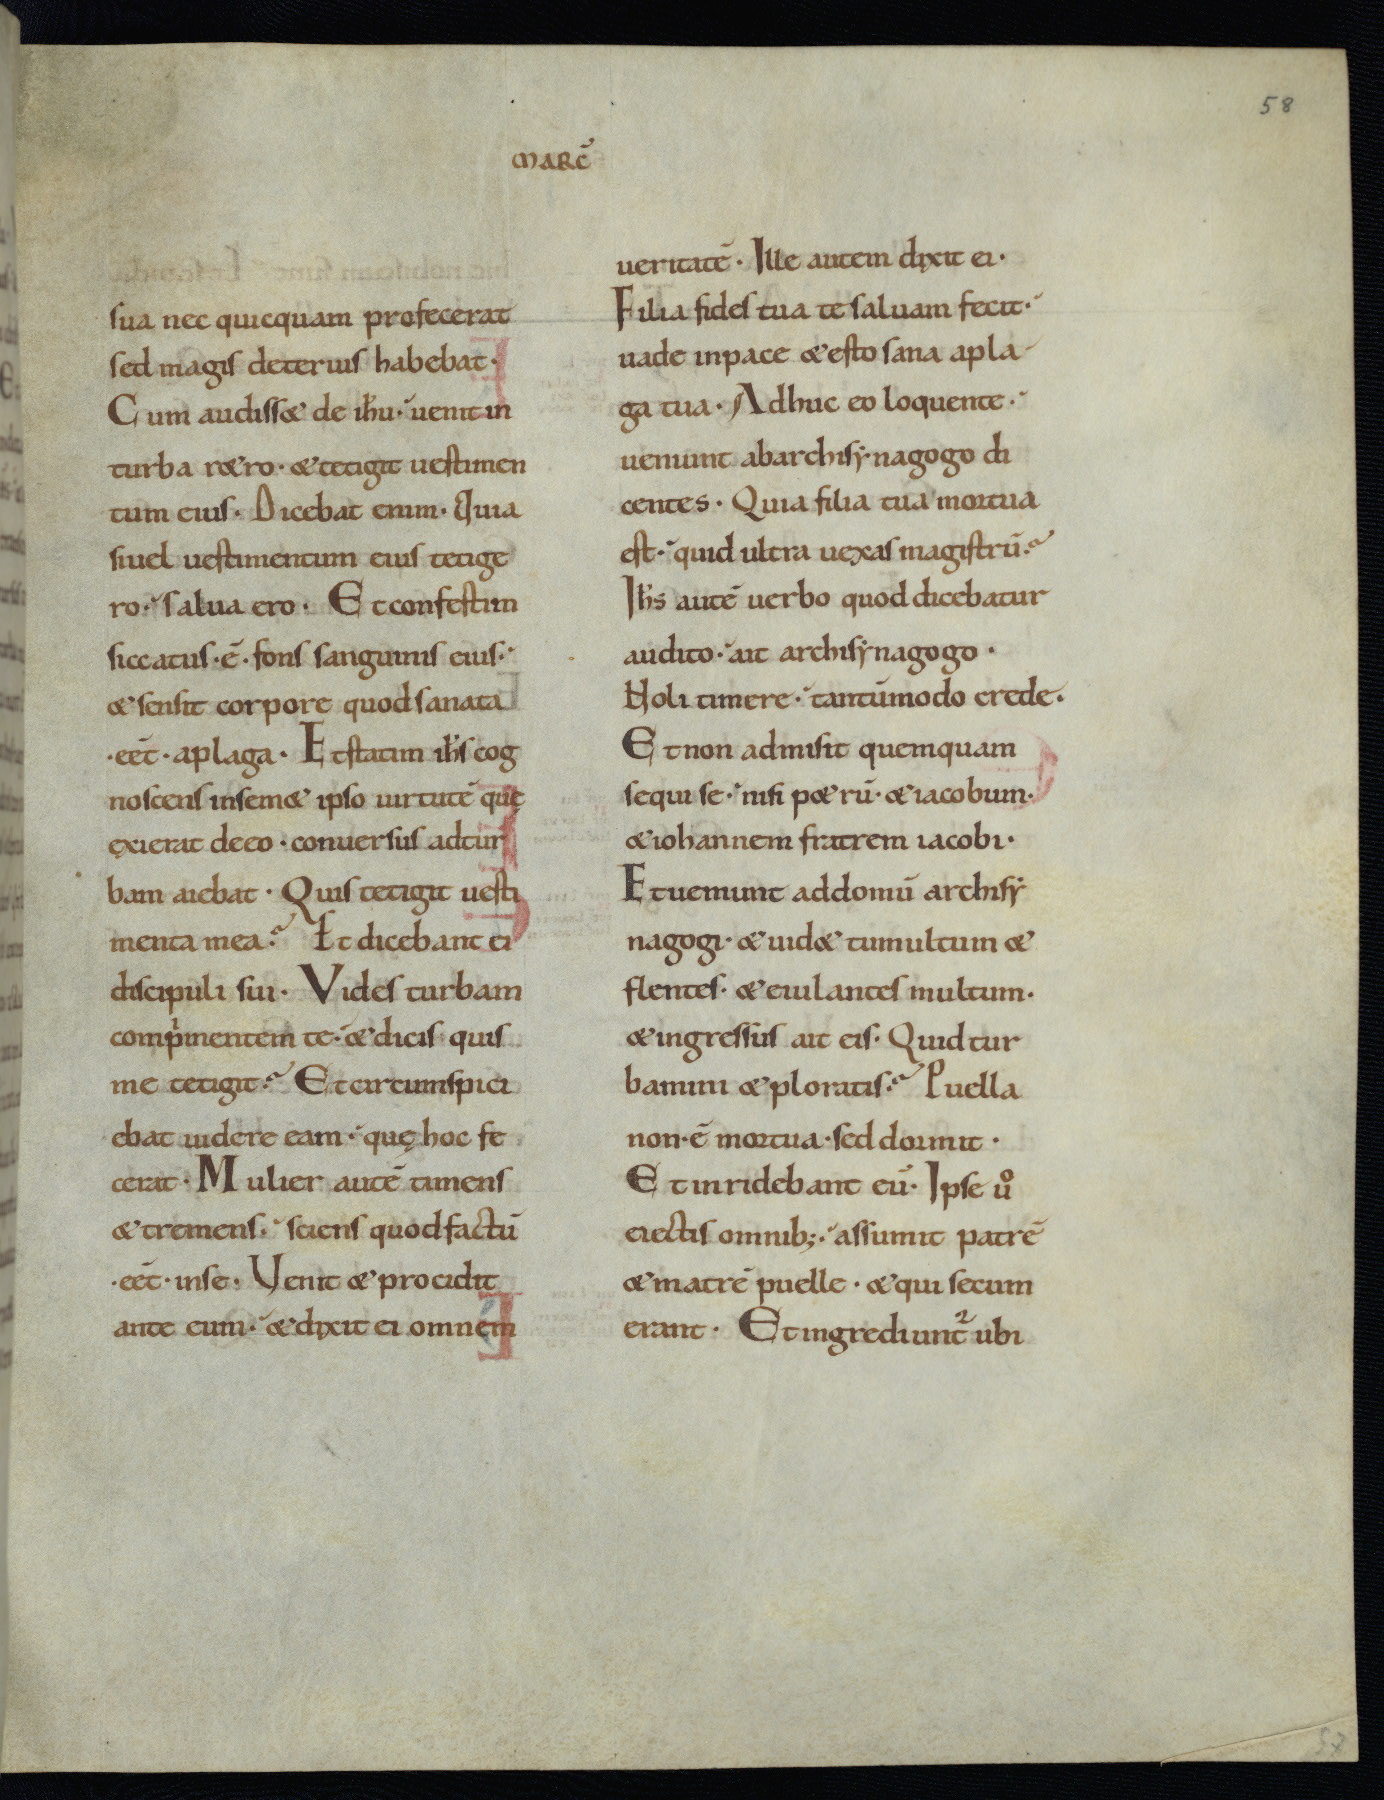 58
MARC̄
sua nec quicquam profecerat
sed magis deterius habebat·
Cum audiss& de ihu· uenit in
turba r&ro· & tetigit uestimen
tum eius· Dicebat enim· Quia
si uel uestimentum eius tetige
ro· salua ero· Et confestim
siccatus·ē· fons sanguinis eius·
& sensit corpore quod sanata
·eēt· a plaga· Et statim ihs cog
noscens in sem& ipso uirtutē quę
exierat de eo· conuersus ad tur
bam aiebat· Quis tetigit uesti
menta mea? Et dicebant ei
discipuli sui· Vides turbam
comp̍mentem te· & dicis quis
me tetigit? Et circumspici
ebat uidere eam· quę hoc fe
cerat· Mulier autē timens
& tremens· sciens quod factū
·eēt· in se· Venit & procidit
ante eum· & dixit ei omnem
ueritatē· Ille autem dixit ei·
Filia fides tua te saluam fecit·
uade in pace & esto sana a pla
ga tua· Adhuc eo loquente·
ueniunt ab archisẏnagogo di
centes· Quia filia tua mortua
est· quid ultra uexas magistrū?
Ihs autē uerbo quod dicebatur
audito· ait archisẏnagogo·
Noli timere· tantūmodo crede·
Et non admisit quemquam
sequi se· nisi p&rū· & iacobum·
& iohannem fratrem iacobi·
Et ueniunt ad domū archisẏ
nagogi· & uid& tumultum &
flentes· & eiulantes multum·
& ingressus ait eis· Quid tur
bamini & ploratis? Puella
non·ē mortua· sed dormit·
Et inridebant eū· Ipse uº
eiectis omnib;· assumit patrē
& matrē puelle· & qui secum
erant· Et ingrediunt᷑ ubi
57